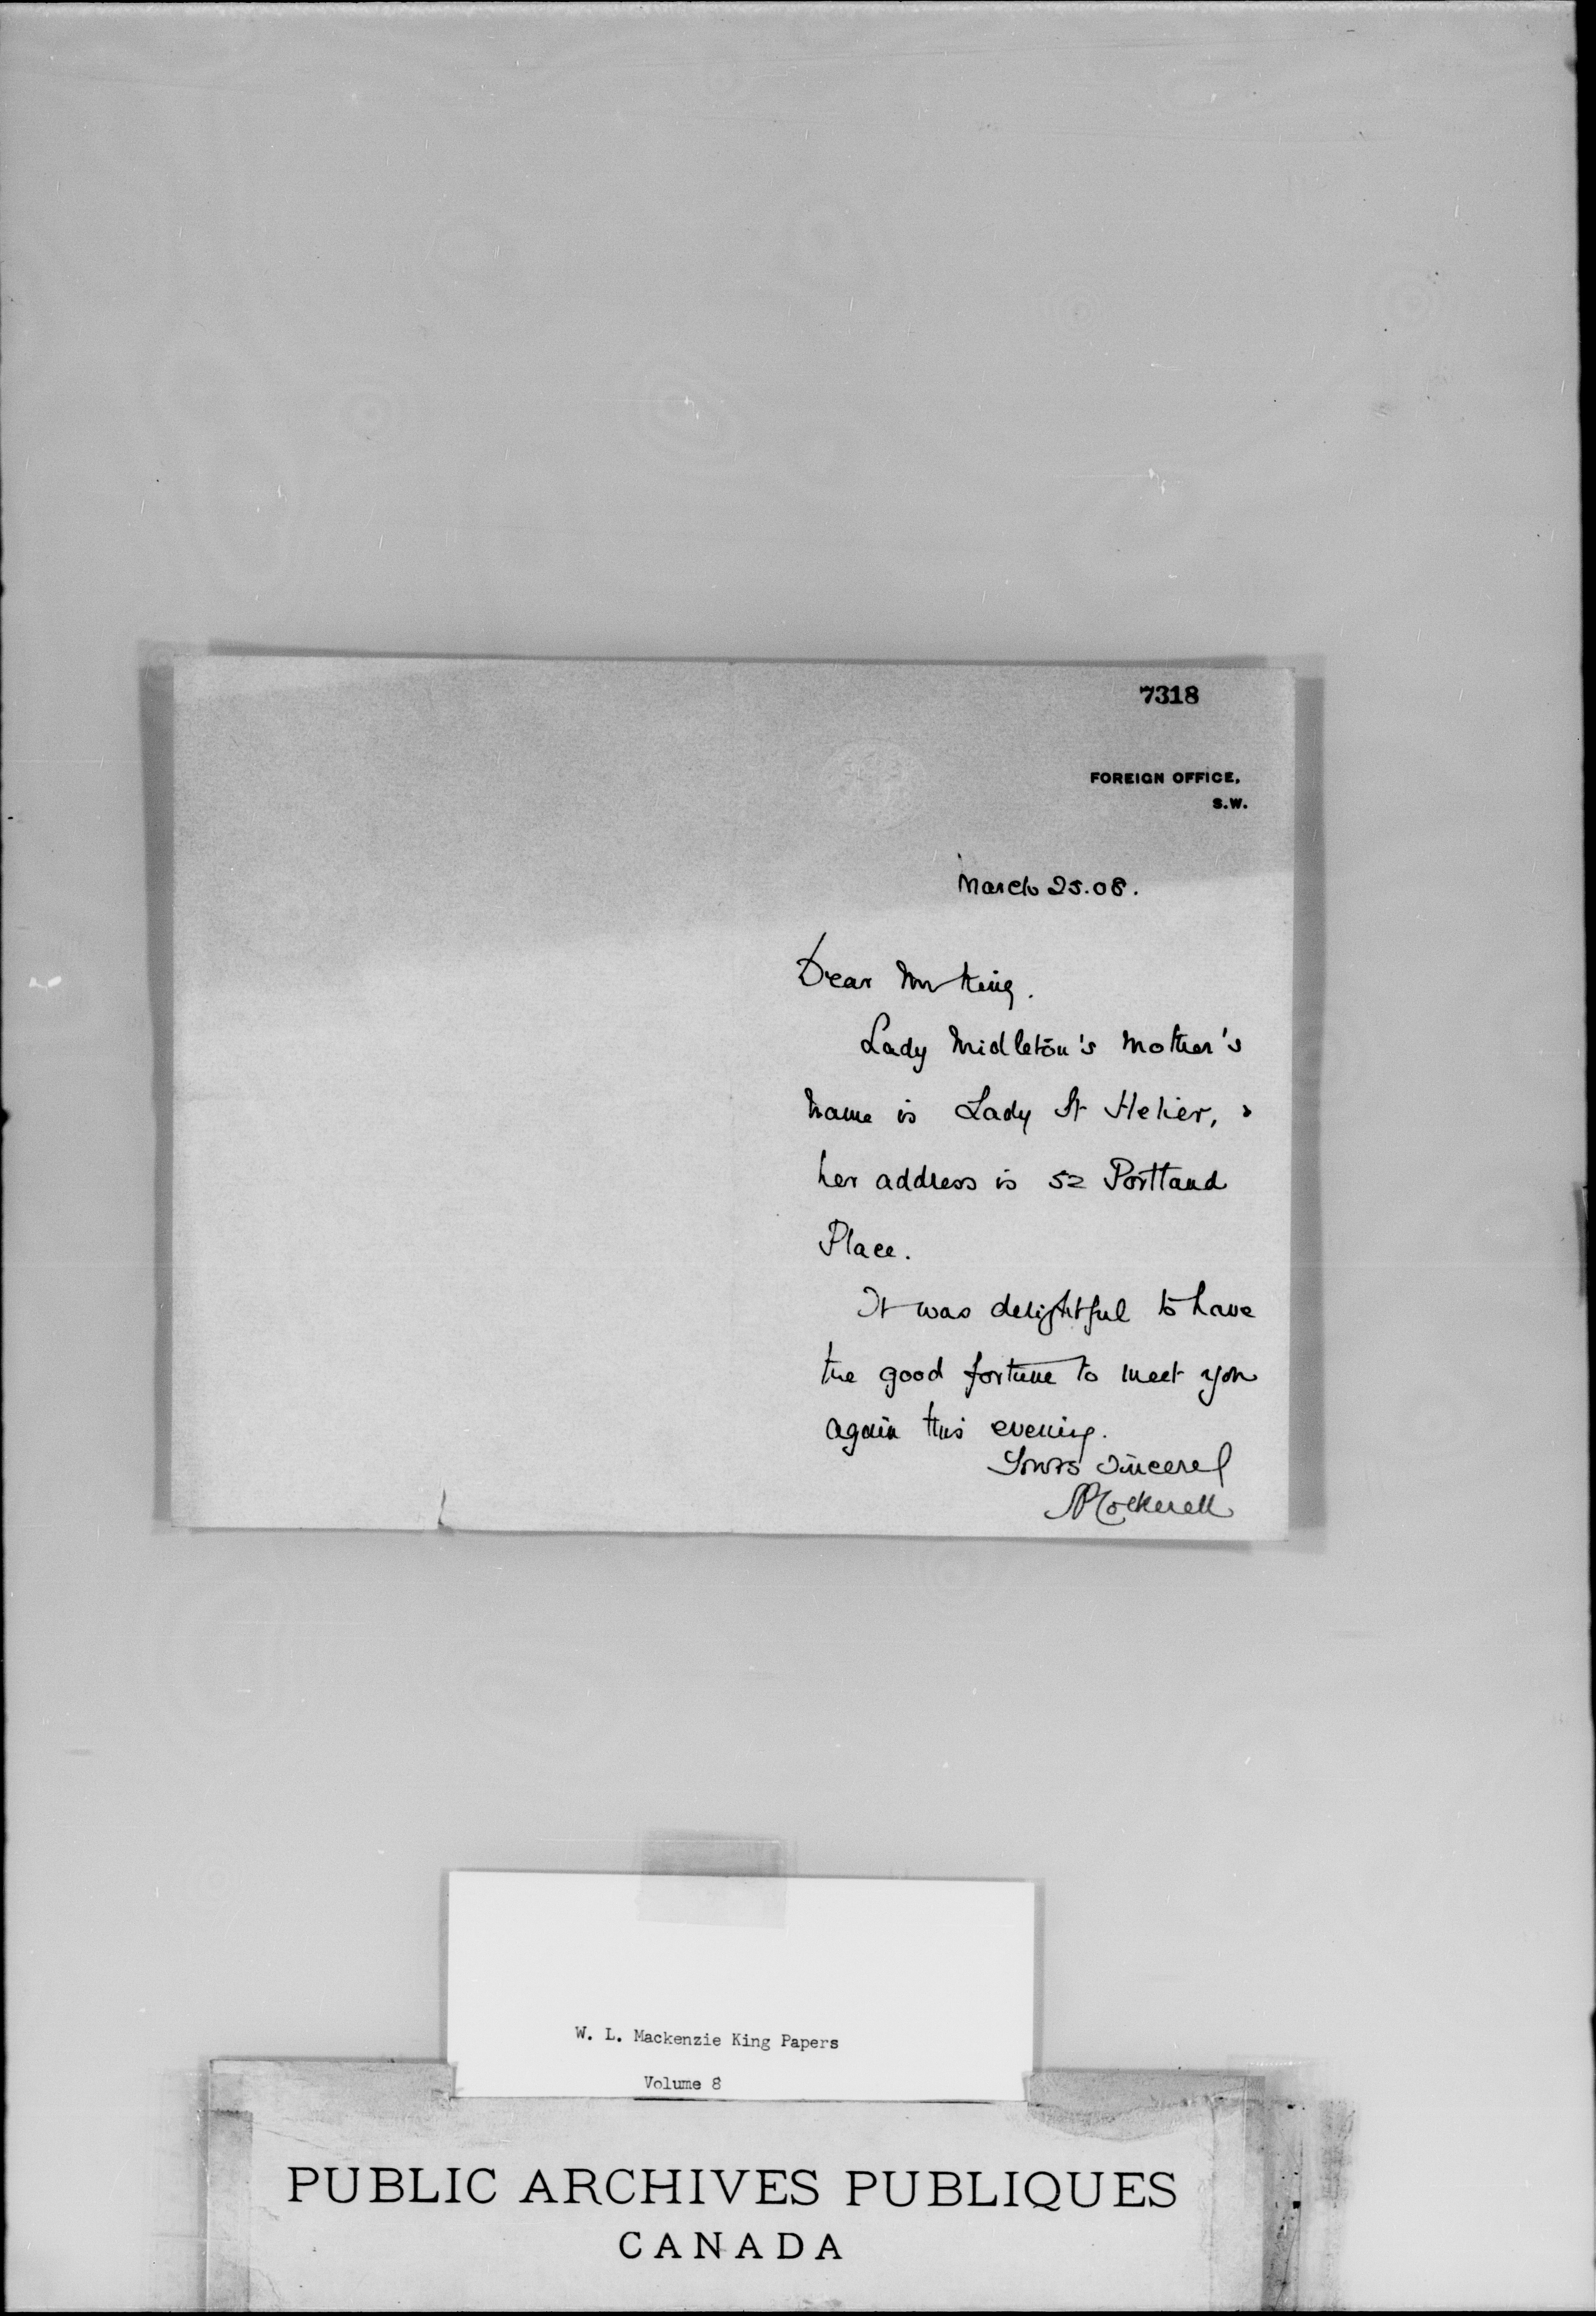 7318
FOREIGN OFFICE,
S.W.
March 25.08.
Dear Mr King.
Lady Midleton's Mother's
name is Lady St Helier, &
her address is 52 Portland
Place.
It was delightful to have
the good fortune to meet you
again this evening.
Yours sincerel
Cockerell
W. L. Mackenzie King Papers
Volume 8
PUBLIC ARCHIVES PUBLIQUES
CANADA